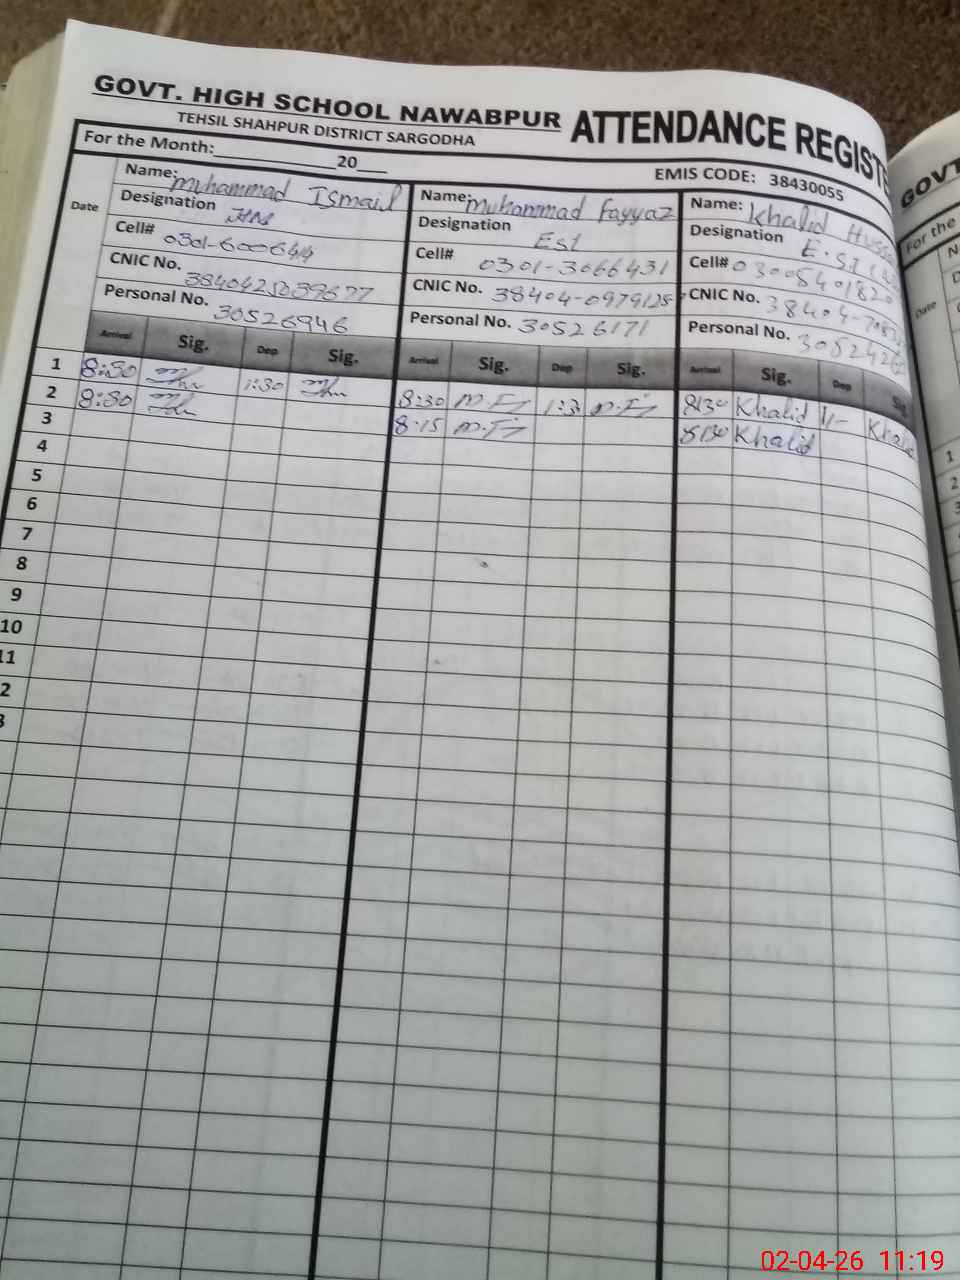 GOVT. HIGH SCHOOL NAWABPUR ATTENDANCE REGISTE
TEHSIL SHAHPUR DISTRICT SARGODHA
For the Month: 20 EMIS CODE: 38430055
Name: Muhammad Ismail Name: Muhammad Fayyaz Name: Khalid
Date Designation Designation Est Designation
Cell# 0301- Cell# 0301-3066431 Cell# 03008401820
CNIC No. CNIC No. 38404-0979125 CNIC No. 38404-
Personal No. 30526946 Personal No. 30526171 Personal No.
Arrival Sig. Dep Sig. Arrival Sig. Dep Sig. Arrival Sig. Dep Sig
1 8:30 1:30 8:30 1:3 8:30 Khalid Khalid
2 8:30 8:15 8:30 Khalid
3
4
5
6
7
8
9
10
11
2
3
GOVT
For the
Date
1
2
3
02-04-26 11:19